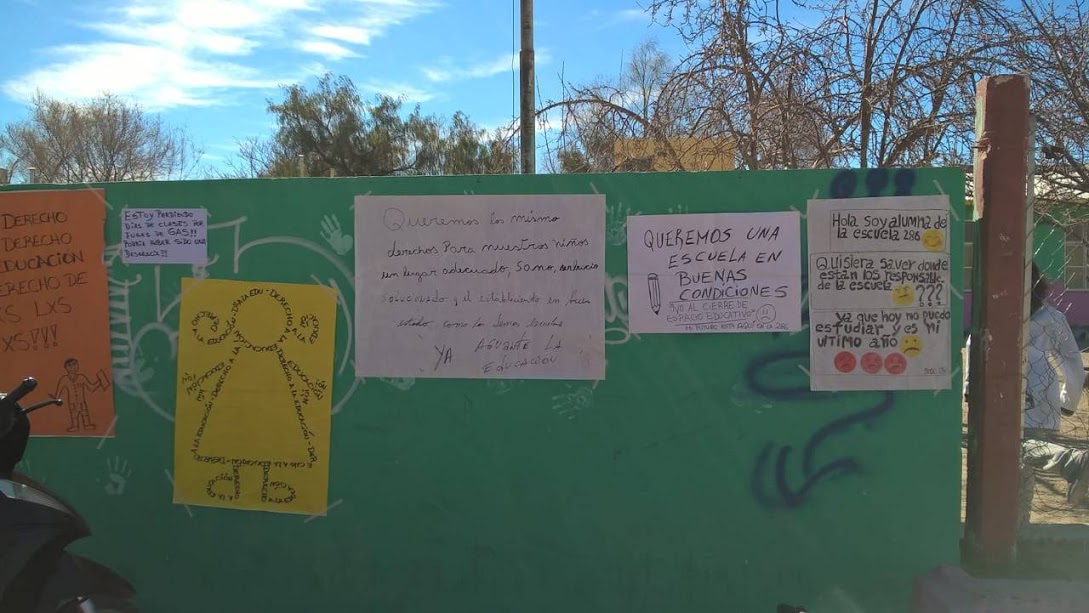 DERECHO
DERECHO
EDUCACION
DERECHO DE
LXS
XS!!!!
ESTOY PERDIENDO
DÍAS DE CLASES POR
FUGAS DE GAS!!
PODRIA HABER SIDO UNA
DESGRACIA!!
DERECHO A LA EDUCACIÓN
Queremos los mismo
derechos Para nuestros niños
un lugar adecuado, Sano,
solucionado y el establecimiento en buen
estado, como las demas escuelas
YA AGUANTE LA
EDUCACION
QUEREMOS UNA
ESCUELA EN
BUENAS
CONDICIONES
"NO AL CIERRE DE
ESPACIO EDUCATIVO"
MI FUTURO ESTA AQUÍ EN LA 286
Hola, soy alumna de
la escuela 286
Quisiera saver donde
estan los responsable
de la escuela ???
ya que hoy no puedo
estudiar y es mi
utimo año